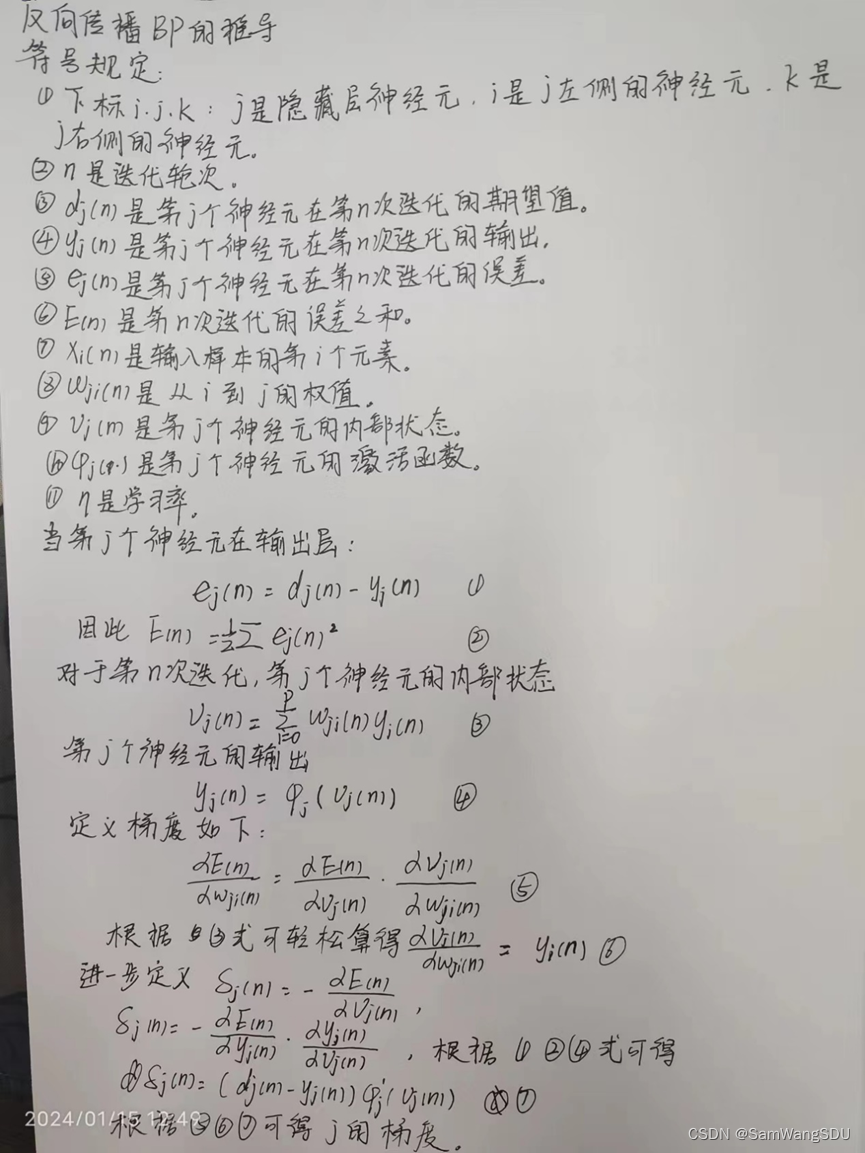 反向传播BP的推导
符号规定:
① 下标i.j.k: j是隐藏层神经元, i是j左侧的神经元, k是
j右侧的神经元。
② n是迭代轮次。
③ dj(n)是第j个神经元在第n次迭代的期望值。
④ yj(n)是第j个神经元在第n次迭代的输出.
⑤ ej(n)是第j个神经元在第n次迭代的误差。
⑥ E(n)是第n次迭代的误差之和。
⑦ xi(n)是输入样本的第i个元素。
⑧ wji(n)是从i到j的权值。
⑨ vj(n)是第j个神经元的内部状态。
⑩ φj(·)是第j个神经元的激活函数。
⑪ η是学习率。
当第j个神经元在输出层:
ej(n) = dj(n) - yj(n) ①
因此 E(n) = ½∑ ej(n)² ②
对于第n次迭代, 第j个神经元的内部状态
vj(n) = ∑_{i=0}^{p} wji(n)yi(n) ③
第j个神经元的输出
yj(n) = φj(vj(n)) ④
定义梯度如下:
∂E(n)/∂wji(n) = ∂E(n)/∂vj(n) · ∂vj(n)/∂wji(n) ⑤
根据③式可轻松算得 ∂vj(n)/∂wji(n) = yi(n) ⑥
进一步定义 δj(n) = - ∂E(n)/∂vj(n),
δj(n) = - ∂E(n)/∂yj(n) · ∂yj(n)/∂vj(n), 根据①②④式可得
δj(n) = (dj(n) - yj(n))φj'(vj(n)) ⑦
2024/01/15 12:49
根据⑤⑥⑦可得j的梯度。
CSDN @SamWangSDU